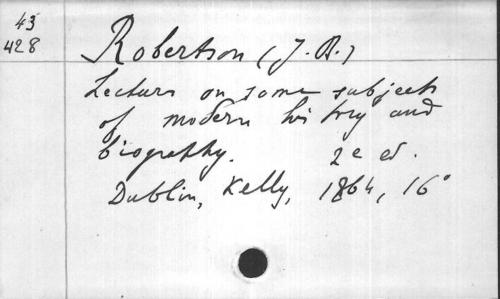 43
428
Robertson (J. B.)
Lectures on some subjects
of modern history and
biography. 2e ed.
Dublin, Kelly, 1864, 16°